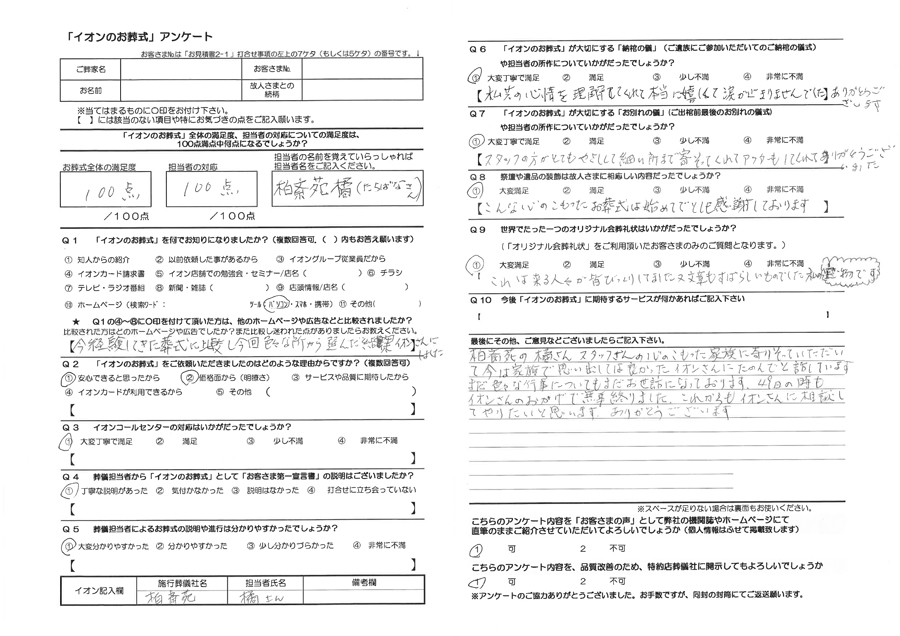 「イオンのお葬式」アンケート
お客さま№は「お見積書2-1」打合せ事項の左上の7ケタ(もしくは5ケタ)の番号です。↓
ご葬家名 お客さま№
お名前 故人さまとの続柄
※当てはまるものに○印をお付け下さい。
【 】には該当のない項目や特にお気づきの点をご記入願います。
「イオンのお葬式」全体の満足度、担当者の対応についての満足度は、
100点満点中何点になるでしょうか?
お葬式全体の満足度 担当者の対応 担当者の名前を覚えていらっしゃれば
担当者名をご記入ください。
100点 100点 柏斎苑 橘(たちばなさん)
/100点 /100点
Q1 「イオンのお葬式」を何でお知りになりましたか?(複数回答可、( )内もお答え願います)
① 知人からの紹介 ② 以前依頼した事があるから ③ イオングループ従業員だから
④ イオンカード請求書 ⑤ イオン店舗での勉強会・セミナー/店名( ) ⑥ チラシ
⑦ テレビ・ラジオ番組 ⑧ 新聞・雑誌( ) ⑨ 店頭情報/店名( )
⑩ ホームページ(検索ワード: ツール(パソコン・スマホ・携帯) ⑪ その他( )
★ Q1の④~⑧に○印を付けて頂いた方は、他のホームページや広告などと比較されましたか?
比較された方はどのホームページや広告でしたか?また比較し迷われた点がありましたらお教えください。
【今迄経験してきた葬式に比較し今回色々な所から選んだ結果イオンさんにきました
Q2 「イオンのお葬式」をご依頼いただきましたのはどのような理由からですか?(複数回答可)
① 安心できると思ったから ② 価格面から(明瞭さ) ③ サービスや品質に期待したから
④ イオンカードが利用できるから ⑤ その他 ( )
【 】
Q3 イオンコールセンターの対応はいかがだったでしょうか?
① 大変丁寧で満足 ② 満足 ③ 少し不満 ④ 非常に不満
【 】
Q4 葬儀担当者から「イオンのお葬式」として「お客さま第一宣言書」の説明はございましたか?
① 丁寧な説明があった ② 気付かなかった ③ 説明はなかった ④ 打合せに立ち会っていない
【 】
Q5 葬儀担当者によるお葬式の説明や進行は分かりやすかったでしょうか?
① 大変分かりやすかった ② 分かりやすかった ③ 少し分かりづらかった ④ 非常に不満
【 】
イオン記入欄 施行葬儀社名 担当者氏名 備考欄
柏斎苑 橘さん
Q6 「イオンのお葬式」が大切にする「納棺の儀」(ご遺族にご参加いただいてのご納棺の儀式)
や担当者の所作についていかがだったでしょうか?
① 大変丁寧で満足 ② 満足 ③ 少し不満 ④ 非常に不満
【私共の心情を理解してくれて本当に嬉しくて涙が止まりませんでした】ありがとうございます
Q7 「イオンのお葬式」が大切にする「お別れの儀」(ご出棺前最後のお別れの儀式)
や担当者の所作についていかがだったでしょうか?
① 大変丁寧で満足 ② 満足 ③ 少し不満 ④ 非常に不満
【スタッフの方がとてもやさしくて細い所まで寄そってくれてアフターもしてくれてありがとうございました
Q8 祭壇や遺品の装飾は故人さまに相応しい内容だったでしょうか?
① 大変満足 ② 満足 ③ 少し不満 ④ 非常に不満
【こんな心のこもったお葬式は始めてでとても感謝しております 】
Q9 世界でたった一つのオリジナル会葬礼状はいかがだったでしょうか?
(「オリジナル会葬礼状」をご利用頂いたお客さまのみのご質問となります。)
① 大変満足 ② 満足 ③ 少し不満 ④ 非常に不満
これは来る人々が皆びっくりしてました 文章もすばらしいものでした 私の宝物です
Q10 今後「イオンのお葬式」に期待するサービスが何かあればご記入下さい
【 】
最後にその他、ご意見などございましたらご記入下さい。
柏斎苑の橘さん スタッフさんの心のこもった家族に寄りそっていただい
て今は家族で思い出しては良かったイオンさんにたのんでと話しています
まだ色々な行事についてもまだお世話になっております。49日の時も
イオンさんのおかげで無事終りました。これからもイオンさんに相談し
てやりたいと思います ありがとうございます
※スペースが足りない場合は裏面もお使いください。
こちらのアンケート内容を「お客さまの声」として弊社の機関誌やホームページにて
直筆のままご紹介させていただいてよろしいでしょうか(個人情報はふせて掲載致します)
1 可 2 不可
こちらのアンケート内容を、品質改善のため、特約店葬儀社に開示してもよろしいでしょうか
1 可 2 不可
※アンケートのご協力ありがとうございました。お手数ですが、同封の封筒にてご返送願います。